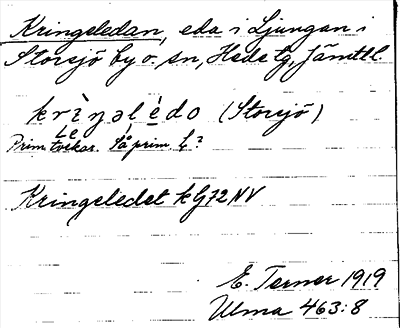 Kringeledan, eda i Ljungan i
Storsjö by o. sn, Hede tg, Jämtl l.
krìŋəlédo (Storsjö)
Le
Prim. tvekar. Så prim. L?
Kringeledet kG72NV
E. Terner 1919
Ulma 463:8